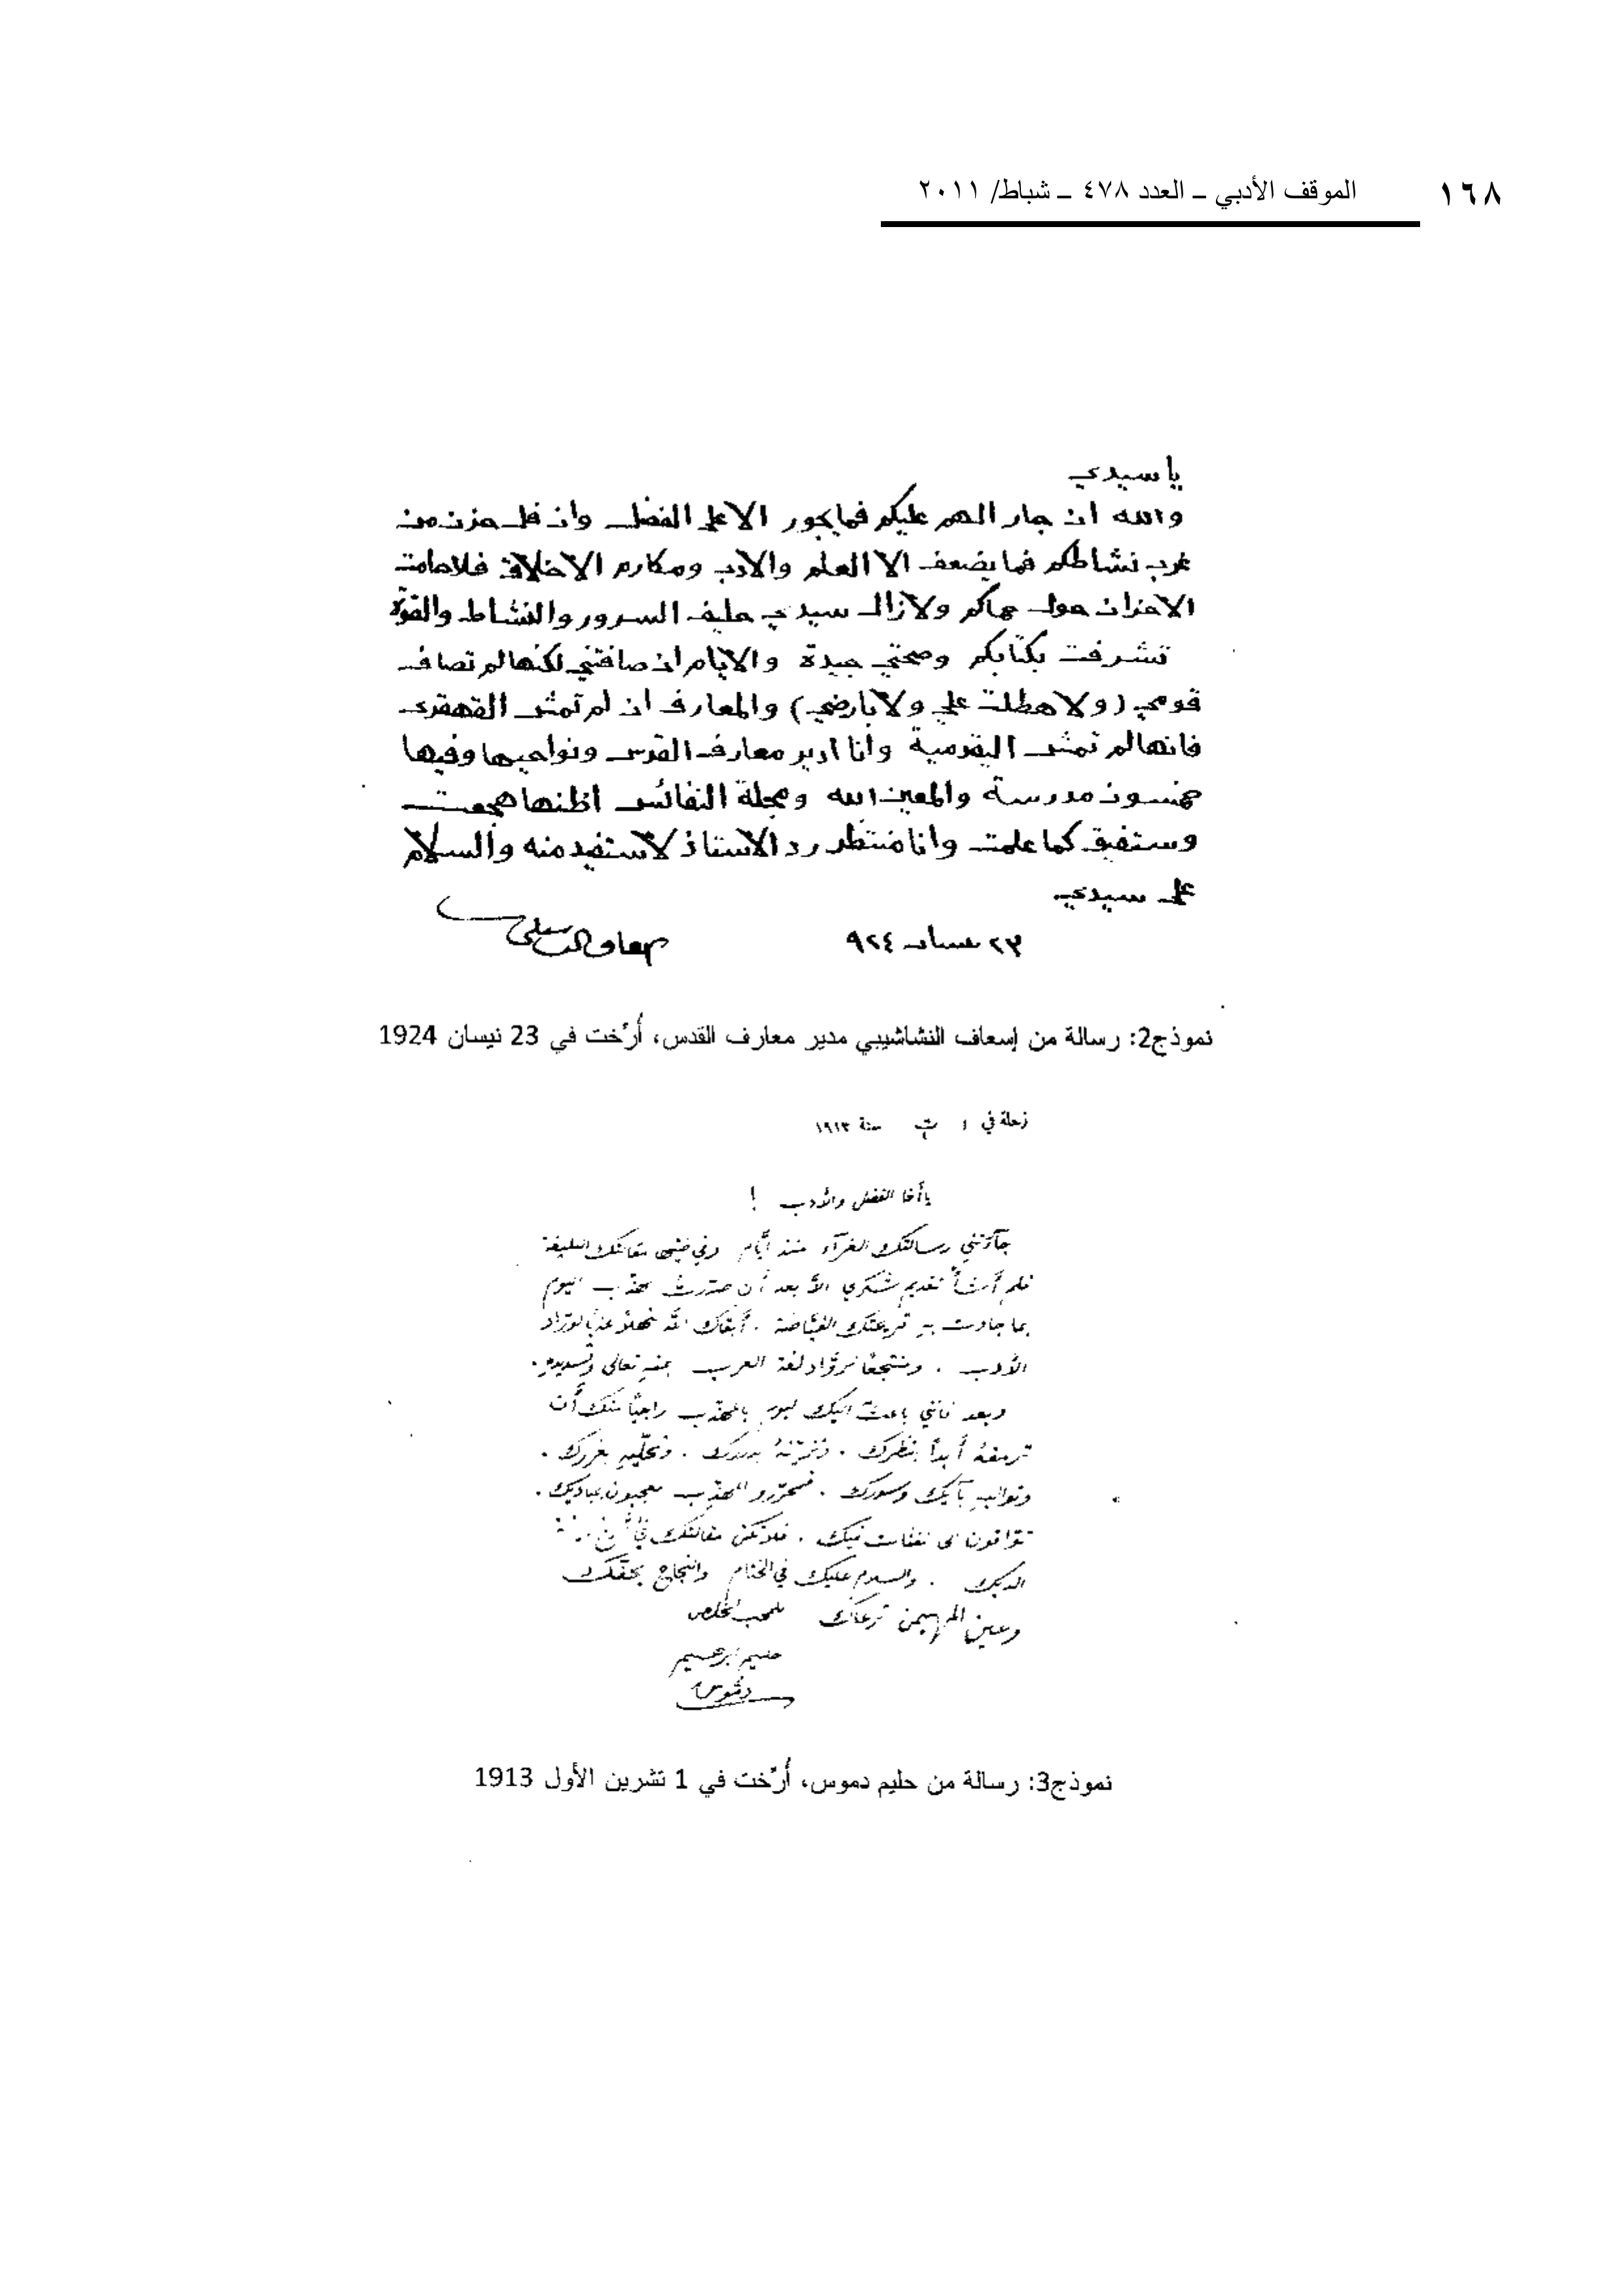 ١٦٨ الموقف الأدبي ـ العدد ٤٧٨ ـ شباط/ ٢٠١١
يا سيدي
والله ان جار الهم عليكم فما يجور الا على الفضل وان فل حزن من
غرب نشاطكم فما يضعف الا العلم والادب ومكارم الاخلاق فلا حامت
الاحزان حول حماكم ولا زال سيدي حليف السرور والنشاط والقوة
تشرفت بكتابكم وصحتي جيدة والايام ان صافتني لكنها لم تصاف
قومي (ولا هطلت علي ولا بارضي) والمعارف ان لم تمش القهقرى
فانها لم تمش اليقدمية وانا ادير معارف القدس ونواحيها وفيها
خمسون مدرسة والمعين الله ومجلة النفائس اظنها هجعت
وستفيق كما علمت وانا منتظر رد الاستاذ لاستفيد منه والسلام
على سيدي
٢٣ نيسان ٩٢٤
نموذج2: رسالة من إسعاف النشاشيبي مدير معارف القدس، أُرّخت في 23 نيسان 1924
زحلة في ١ ت١ سنة ١٩١٣
يا أخا الفضل والأدب !
جآءتني رسالتك الغرّآء منذ أيّام وفي مقالتك البليغة
فلم أشأ تقديم شكري الاّ بعد أن مهذّب اليوم
بما جادت به قريحتك الفيّاضة . أبقاك الله منهلاً عذباً لورّاد
الأدب . ومنتجعًا لروّاد لغة العرب بمنه تعالى وتسديده.
وبعد فانني باعث اليك اليوم بالمهذّب راجيًا منك أن
ترمقهُ أبداً بنظرك . وتزيّنهُ بدررك . وتحلّيه بغررك .
بآيك وسورك . فمحرّرو المهذّب معجبون بمباديك .
توّاقون الى نفثات فيك . مقالتك
الديك . والسلام عليك في الختام والنجاح
وعين المهيمن ترعاك للمحب المخلص
حليم ابرهيم
دمّوس
نموذج3: رسالة من حليم دموس، أُرّخت في 1 تشرين الأول 1913